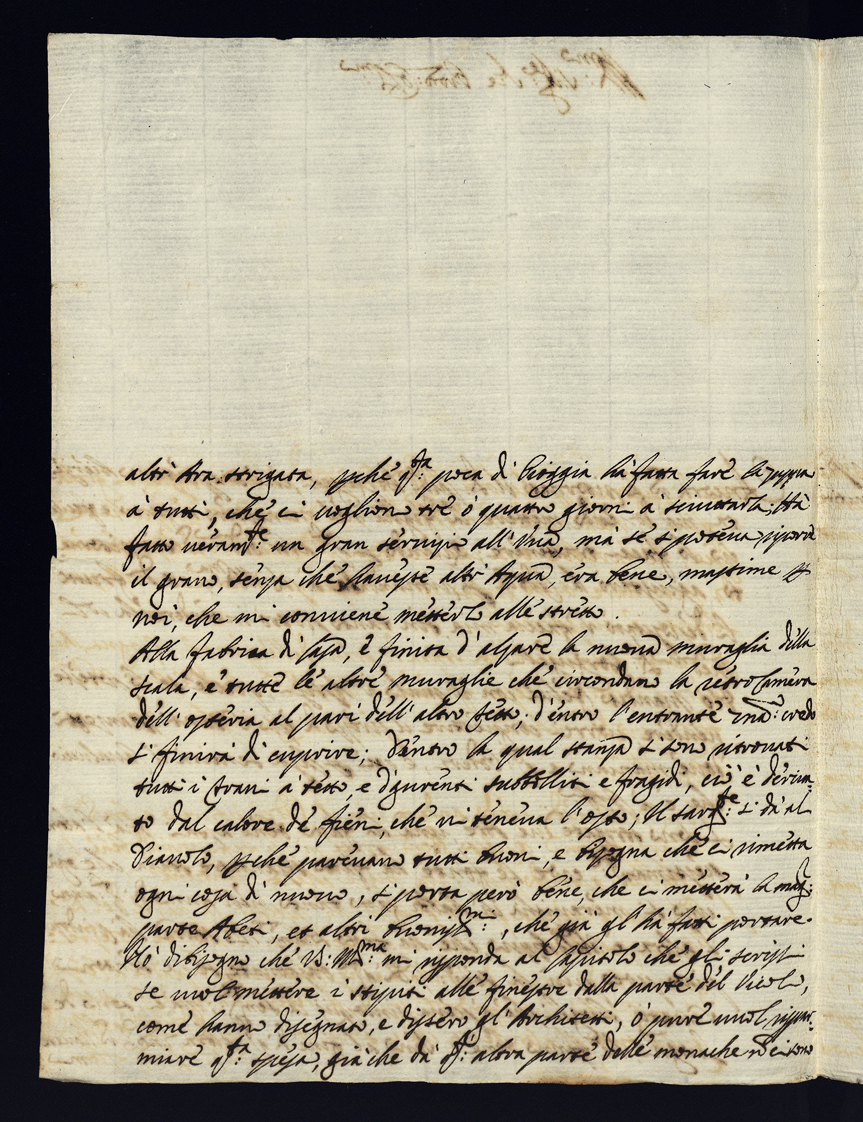 altr'ora strigata, pche q.sta poca di Pioggia hà fatta fare la zuppa
à tutti, che ci vogliono trè ò quattro giorni à sciuttarla; Hà
fatto veram.te un gran servizio all'Uva, mà se si poteva riporre
il grano, senza che havesse altr'Aqua, era bene, massime p
noi, che mi conviene metterlo alle strette.
Alla fabrica di Casa, è finita d'alzare la nuova muraglia della
scala, e tutte le altre muraglie che circondano la retro Camera
dell'osteria al pari dell'altro tetto; dentro l'entrante credo
si finirà di cuprire; Dentro la qual stanza si sono ritrovati
tutti i travi à tetto, e d'gurenti subbolliti e fragidi, ciò è deriva-
to dal calore de fieni, che vi teneva l'oste; Il Sarg.te si dà al
Diavolo, pche parevano tutti buoni, e bisogna che ci rimetta
ogni cosa di nuovo, si porta però bene, che ci metterà la mag:
parte Abeti, et altri buoniss.mi, che già gl'hà fatti portare.
Hò bisogno che V: mi risponda al Capitolo che gli scrissi
se vuol mettere i stipiti alle finestre dalla parte del Vicolo,
come hanno disegnato, e dissero gl'Architetti, ò pure vuol rispar-
miare q.sta spesa, già che da q.ta altra parte delle monache nõ ci sono